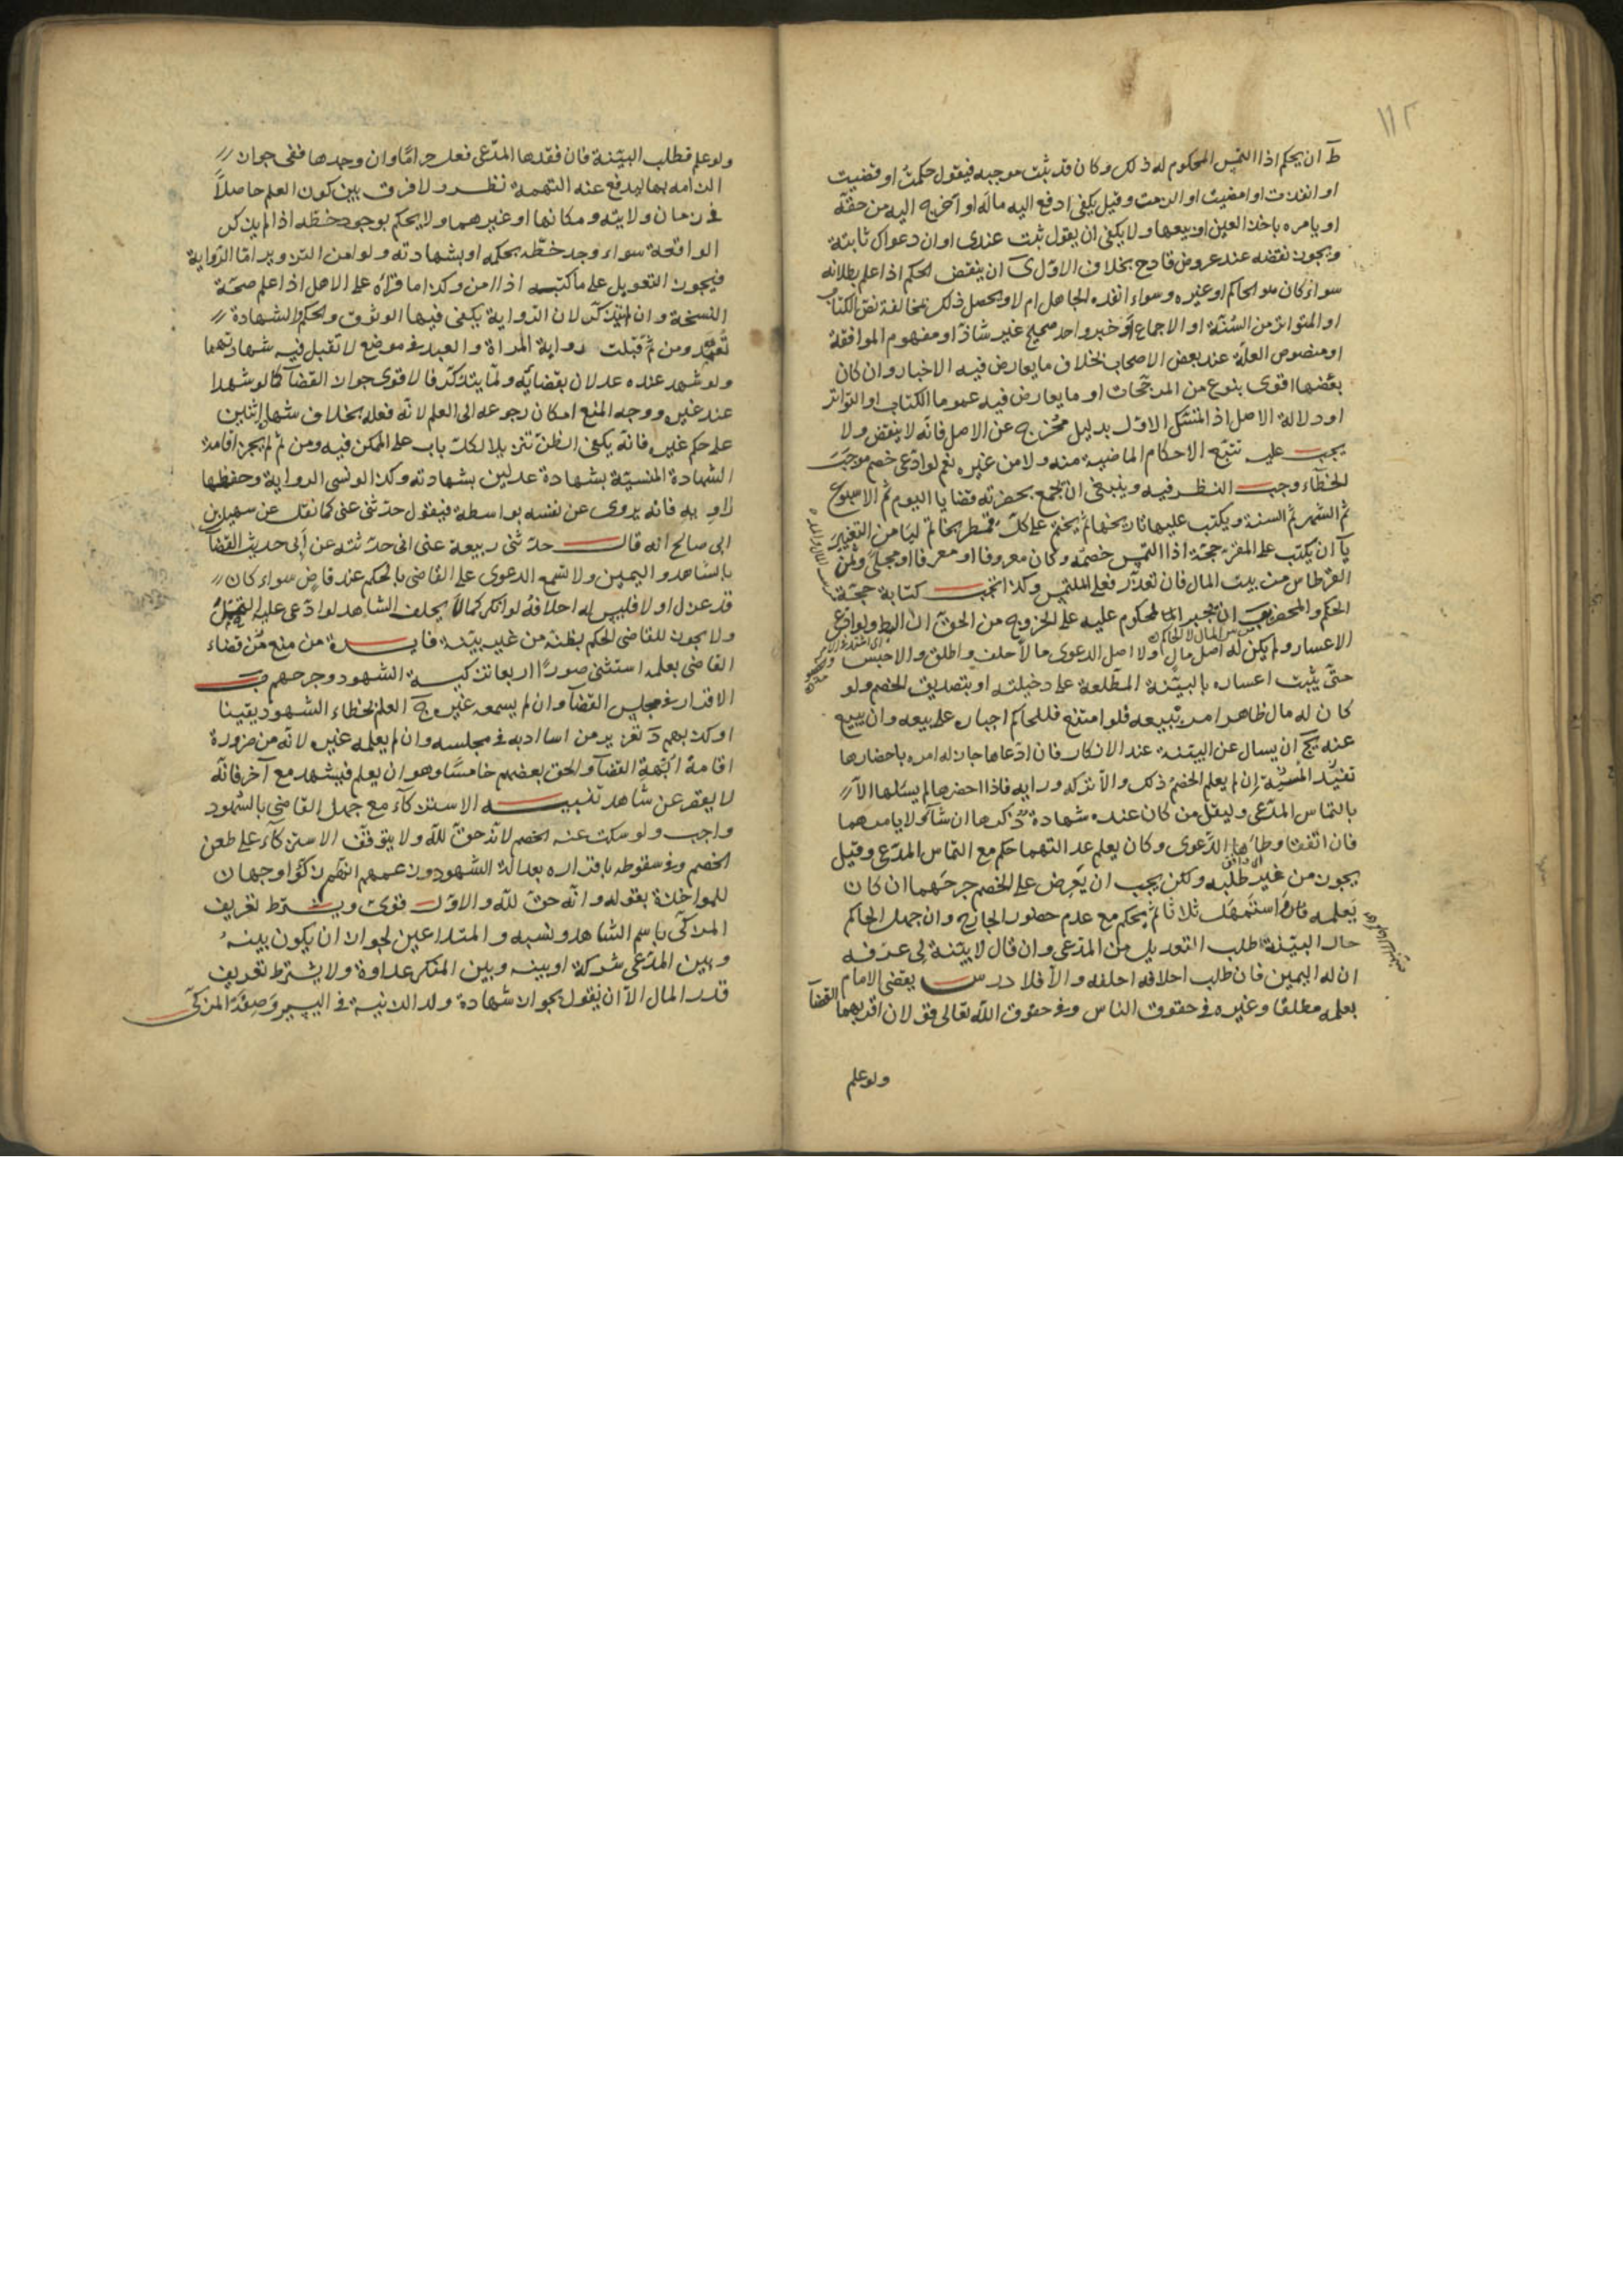 ١١٢
ط ان يحكم اذا التمس المحكوم له ذلك وكان قد ثبت موجبه فيقول حكمت او قضيت
او انفذت او امضيت او الزمت وقيل يكفى ادفع اليه ماله او اخرج اليه من حقه
او يامره باخذ العين او بيعها ولا يكفى ان يقول ثبت عندى او ان دعواك ثابتة
ويجوز نقضه عند عروض قادح بخلاف الاول ى ان ينقض الحكم اذا علم بطلانه
سواء كان هو الحاكم او غيره وسواء انفذه الجاهل ام لا ويحصل ذلك بمخالفة نص الكتاب
او المتواتر من السنة او الاجماع او خبر واحد صحيح غير شاذ او مفهوم الموافقة
او منصوص العلة عند بعض الاصحاب بخلاف ما يعارض فيه الاخبار وان كان
بعضها اقوى بنوع من المرجحات او ما يعارض فيه عموما الكتاب او التواتر
او دلالة الاصل اذا تمسك الاول بدليل مخرج عن الاصل فانه لا ينقض ولا
يجب عليه تتبع الاحكام الماضية منه ولا من غيره نعم لو ادعى خصم موجب
الخطاء وجب النظر فيه وينبغى ان يجمع بحضرته قضايا اليوم ثم الاسبوع
ثم الشهر ثم السنة ويكتب عليها تاريخها ثم يختم على كل قمطر بخاتم ليامن التغيير
يا ان يكتب على المقر حجة اذا التمس خصمه وكان معروفا او معرفا او مجلى وثمن
القرطاس من بيت المال فان تعذر فعلى الملتمس وكذا تجب كتابة حجة
الحكم والمحضر يب ان يجبر المحكوم عليه على الخروج من الحق ان الط ولو ادعى
الاعسار ولم يكن له اصل مال او لا اصل الدعوى مالا حلف واطلق والا حبس
حتى يثبت اعساره بالبينة المطلعة على دخيلته او بتصديق الخصم ولو
كان له مال ظاهر امره ببيعه فلو امتنع فللحاكم اجباره على بيعه وان يبيع
عنه يج ان يسال عن البينة عند الانكار فان ادعاها جاز له امره باحضارها
تقيد المشية ان لم يعلم الخصم ذلك والا تركه ورايه فاذا احضرها لم يسئلها الا
بالتماس المدعى وليقل من كان عنده شهادة ذكرها ان شاء ولا يامرهما
فان اتفقتا وطابقا الدعوى وكان يعلم عدالتهما حكم مع التماس المدعى وقيل
يجوز من غير طلبه ولكن يجب ان يعرض على الخصم جرحهما ان كان
يعلمه فان استمهل ثلاثا ثم يحكم مع عدم حضور الجارح وان جهل الحاكم
حال البينة طلب التعديل من المدعى وان قال لا بينة لى عرفه
ان له اليمين فان طلب احلافه احلفه والا فلا درس يقضى الامام
بعلمه مطلقا وغيره فى حقوق الناس وفى حقوق الله تعالى قولان اقربهما القضا
ولو علم
ولو علم فطلب البينة فان فقدها المدعى فعل حراما وان وجدها ففى جواز
الزامه بها ليدفع عنه التهمة نظر ولا فرق بين كون العلم حاصلا
فى زمان ولايته ومكانها او غيرهما ولا يحكم بوجود خطه اذا لم يتذكر
الواقعة سواء وجد خطه بحكمه او بشهادته ولو امن التزوير اما الرواية
فيجوز التعويل على ما كتبه اذا امن وكذا ما قراه على الاصل اذا علم صحة
النسخة وان لم يتذكر لان الرواية يكفى فيها الوثوق والحكم والشهادة
تعبد ومن ثم قبلت رواية المراة والعبد فى موضع لا تقبل فيه شهادتهما
ولو شهد عنده عدلان بقضائه ولما يتذكر فالاقوى جواز القضا كما لو شهدا
عند غيره ووجه المنع امكان رجوعه الى العلم لانه فعله بخلاف شهادة اثنين
على حكم غيره فانه يكفى الظن تنزيلا لكل باب على الممكن فيه ومن ثم لم يجز اقامة
الشهادة المنسية بشهادة عدلين بشهادته وكذا لو نسى الرواية وحفظها
راو به فانه يروى عن نفسه بواسطة فيقول حدثنى عنى كما نقل عن سهيل بن
ابى صالح انه قال حدثنى ربيعة عنى انى حدثته عن ابى حديث القضا
بالشاهد واليمين ولا تسمع الدعوى على القاضى بالحكم عند قاض سواء كان
قد عزل او لا فليس له احلافه لو انكر كما لا يحلف الشاهد لو ادعى عليه التحمل
ولا يجوز للقاضى الحكم بظنه من غير بينة فايدة من منع من قضاء
القاضى بعلمه استثنى صورا اربعا تزكية الشهود وجرحهم ب
الاقرار فى مجلس القضا وان لم يسمعه غيره ج العلم بخطاء الشهود يقينا
او كذبهم د تعزير من اساء ادبه فى مجلسه وان لم يعلمه غيره لانه من ضرورة
اقامة ابهة القضا والحق بعضهم خامسا وهو ان يعلم فيشهد مع آخر فانه
لا يقصر عن شاهد تنبيه الاستزكاء مع جهل القاضى بالشهود
واجب ولو سكت عنه الخصم لانه حق لله ولا يتوقف الاستزكاء على طعن
الخصم وفى سقوطه باقراره بعدالة الشهود وزعمهم انهم زكوا وجهان
للمواخذة بقوله وانه حق لله والاول قوى ويشترط تعريف
المزكى باسم الشاهد ونسبه والمتداعيين لجواز ان يكون بينه
وبين المدعى شركة او بينه وبين المنكر عداوة ولا يشترط تعريف
قدر المال الا ان نقول بجواز شهادة ولد الزنية فى اليسير وصفة المزكى